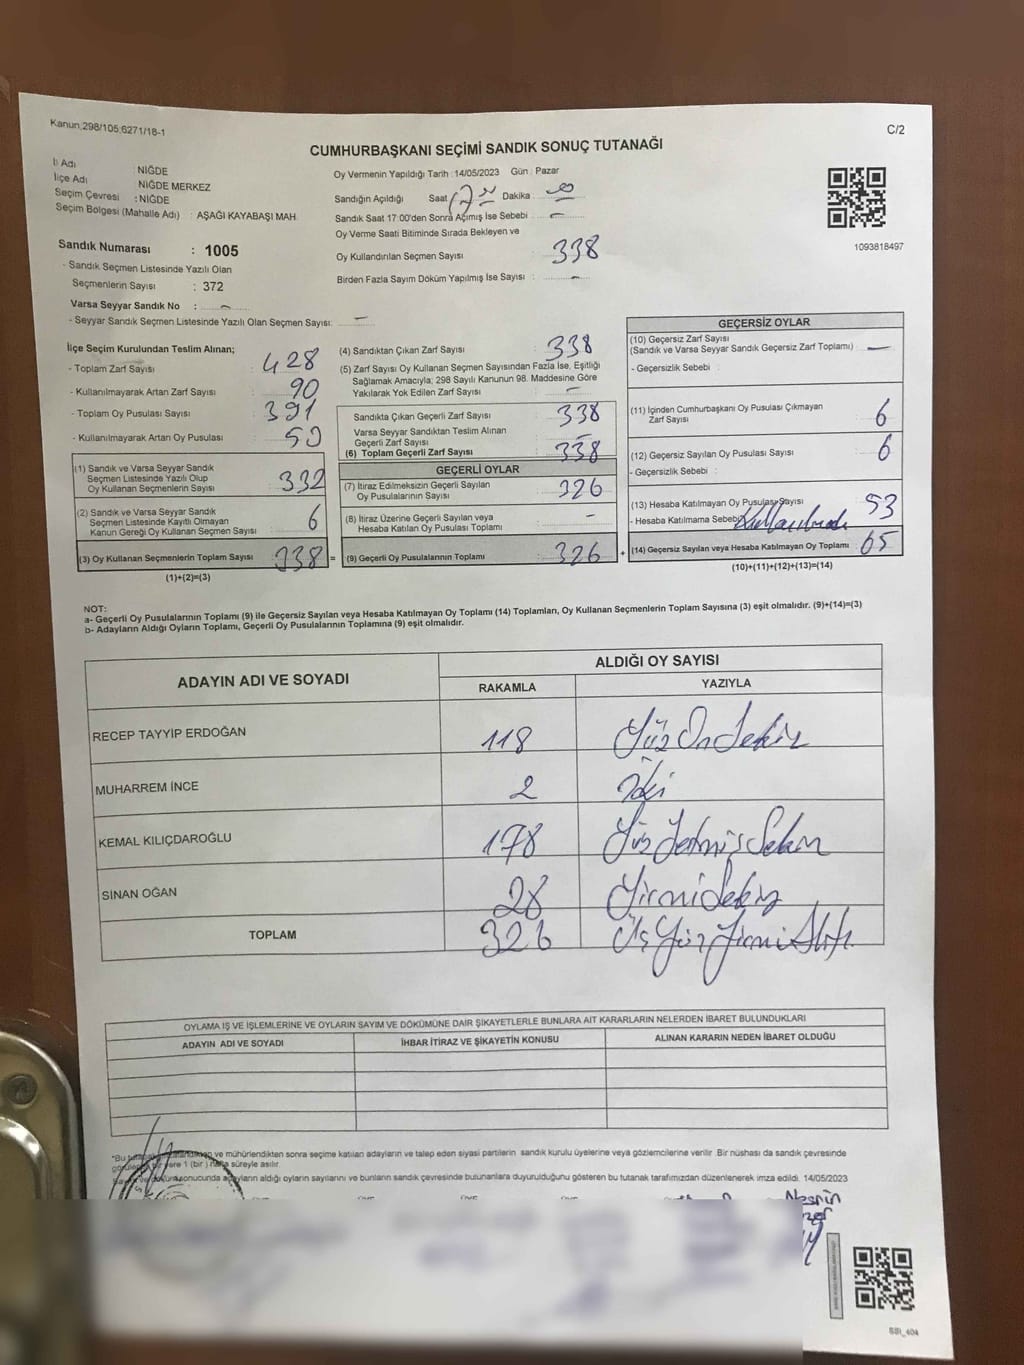 Kanun 298/105,6271/18-1
C/2
CUMHURBAŞKANI SEÇİMİ SANDIK SONUÇ TUTANAĞI
İl Adı : NİĞDE
İlçe Adı : NİĞDE MERKEZ
Seçim Çevresi : NİĞDE
Seçim Bölgesi (Mahalle Adı) : AŞAĞI KAYABAŞI MAH.
Oy Vermenin Yapıldığı Tarih : 14/05/2023 Gün : Pazar
Sandığın Açıldığı Saat Dakika
Sandık Saat 17.00'den Sonra Açılmış İse Sebebi : -
Oy Verme Saati Bitiminde Sırada Bekleyen ve
Oy Kullandırılan Seçmen Sayısı : 338
Birden Fazla Sayım Döküm Yapılmış İse Sayısı : -
1093818497
Sandık Numarası : 1005
- Sandık Seçmen Listesinde Yazılı Olan
Seçmenlerin Sayısı : 372
Varsa Seyyar Sandık No : -
- Seyyar Sandık Seçmen Listesinde Yazılı Olan Seçmen Sayısı: -
İlçe Seçim Kurulundan Teslim Alınan;
- Toplam Zarf Sayısı : 428
- Kullanılmayarak Artan Zarf Sayısı : 90
- Toplam Oy Pusulası Sayısı : 391
- Kullanılmayarak Artan Oy Pusulası : 53
(1) Sandık ve Varsa Seyyar Sandık
Seçmen Listesinde Yazılı Olup
Oy Kullanan Seçmenlerin Sayısı : 332
(2) Sandık ve Varsa Seyyar Sandık
Seçmen Listesinde Kayıtlı Olmayan
Kanun Gereği Oy Kullanan Seçmen Sayısı : 6
(3) Oy Kullanan Seçmenlerin Toplam Sayısı : 338 =
(1)+(2)=(3)
(4) Sandıktan Çıkan Zarf Sayısı : 338
(5) Zarf Sayısı Oy Kullanan Seçmen Sayısından Fazla İse, Eşitliği
Sağlamak Amacıyla; 298 Sayılı Kanunun 98. Maddesine Göre
Yakılarak Yok Edilen Zarf Sayısı : -
Sandıkta Çıkan Geçerli Zarf Sayısı : 338
Varsa Seyyar Sandıktan Teslim Alınan
Geçerli Zarf Sayısı : -
(6) Toplam Geçerli Zarf Sayısı : 338
GEÇERLİ OYLAR
(7) İtiraz Edilmeksizin Geçerli Sayılan
Oy Pusulalarının Sayısı : 326
(8) İtiraz Üzerine Geçerli Sayılan veya
Hesaba Katılan Oy Pusulası Toplamı : -
(9) Geçerli Oy Pusulalarının Toplamı : 326 +
GEÇERSİZ OYLAR
(10) Geçersiz Zarf Sayısı
(Sandık ve Varsa Seyyar Sandık Geçersiz Zarf Toplamı) : -
- Geçersizlik Sebebi :
(11) İçinden Cumhurbaşkanı Oy Pusulası Çıkmayan
Zarf Sayısı : 6
(12) Geçersiz Sayılan Oy Pusulası Sayısı : 6
- Geçersizlik Sebebi :
(13) Hesaba Katılmayan Oy Pusulası Sayısı : 53
- Hesaba Katılmama Sebebi
(14) Geçersiz Sayılan veya Hesaba Katılmayan Oy Toplamı : 65
(10)+(11)+(12)+(13)=(14)
NOT:
a- Geçerli Oy Pusulalarının Toplamı (9) ile Geçersiz Sayılan veya Hesaba Katılmayan Oy Toplamı (14) Toplamları, Oy Kullanan Seçmenlerin Toplam Sayısına (3) eşit olmalıdır. (9)+(14)=(3)
b- Adayların Aldığı Oyların Toplamı, Geçerli Oy Pusulalarının Toplamına (9) eşit olmalıdır.
ADAYIN ADI VE SOYADI
ALDIĞI OY SAYISI
RAKAMLA YAZIYLA
RECEP TAYYİP ERDOĞAN 118 Yüz On Sekiz
MUHARREM İNCE 2 İki
KEMAL KILIÇDAROĞLU 178 Yüz Yetmiş Sekiz
SİNAN OĞAN 28 Yirmi Sekiz
TOPLAM 326 Üç Yüz Yirmi Altı
OYLAMA İŞ VE İŞLEMLERİNE VE OYLARIN SAYIM VE DÖKÜMÜNE DAİR ŞİKAYETLERLE BUNLARA AİT KARARLARIN NELERDEN İBARET BULUNDUKLARI
ADAYIN ADI VE SOYADI
İHBAR İTİRAZ VE ŞİKAYETİN KONUSU
ALINAN KARARIN NEDEN İBARET OLDUĞU
*Bu ve mühürlendikten sonra seçime katılan adayların ve talep eden siyasi partilerin sandık kurulu üyelerine veya gözlemcilerine verilir. Bir nüshası da sandık çevresinde
yere 1 (bir) hafta süreyle asılır.
sonucunda adayların aldığı oyların sayılarını ve bunların sandık çevresinde bulunanlara duyurulduğunu gösteren bu tutanak tarafımızdan düzenlenerek imza edildi. 14/05/2023
Nesrin
SBI_404